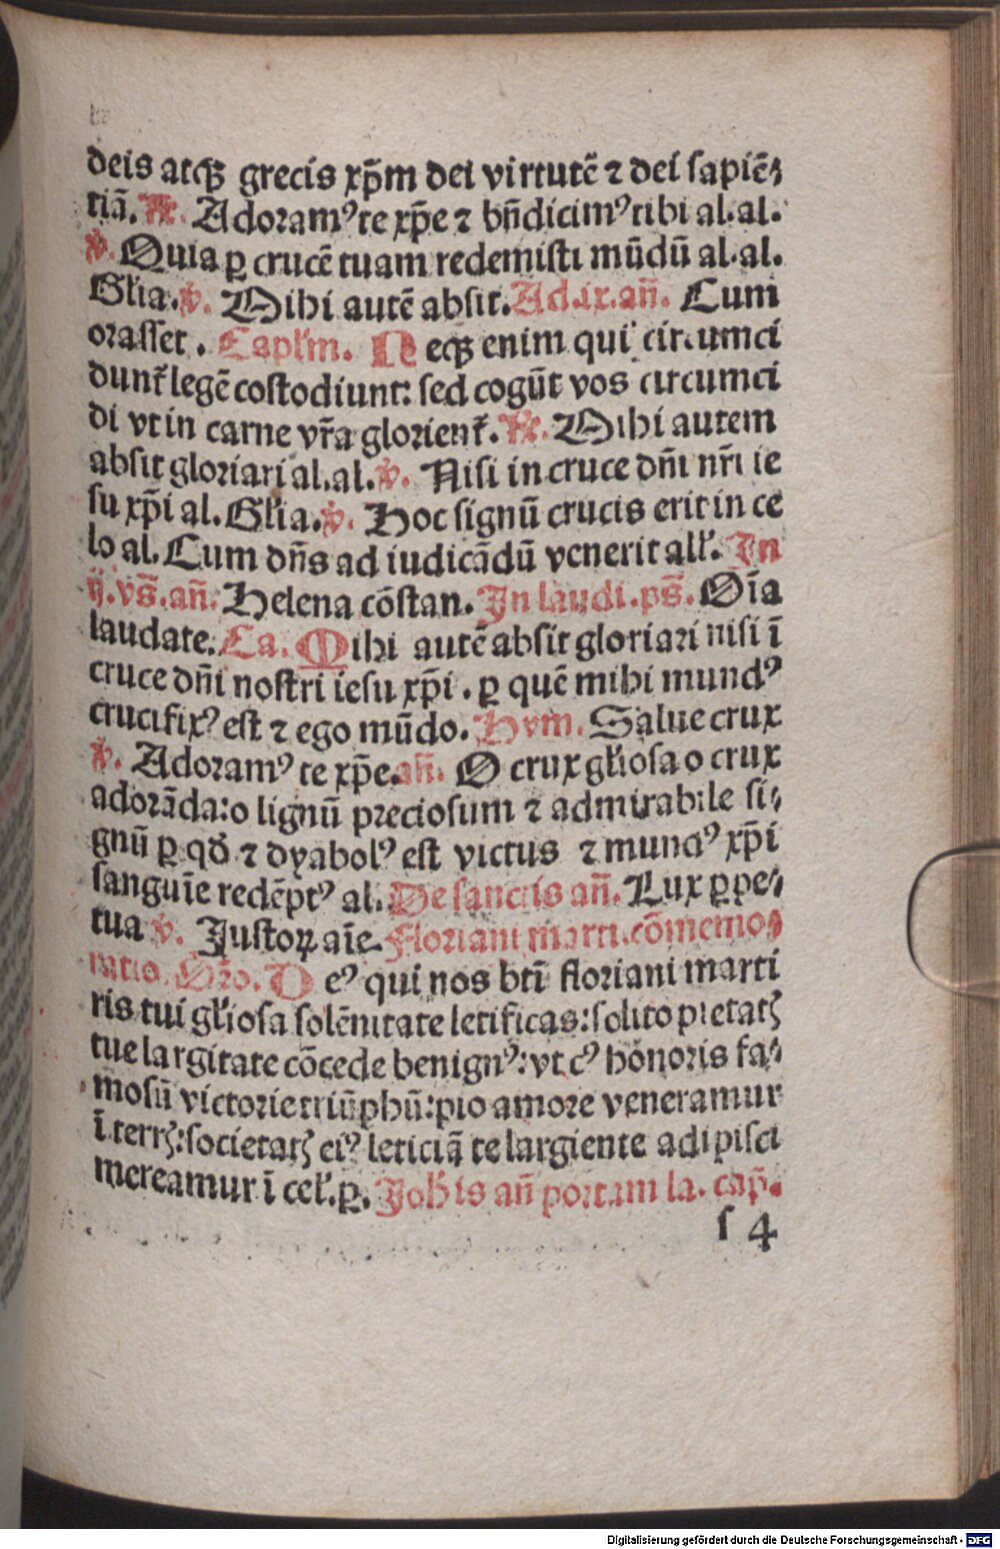 deis atqꝫ grecis xp̄m dei virtutē ⁊ dei sapiē⸗
tiā. ℟. Adoramꝰ te xp̄e ⁊ bn̄dicimꝰ tibi al. al.
℣. Quia ꝑ crucē tuam redemisti mūdū al. al.
Gl̓ia. ℣. Mihi autē absit. Ad .ix. an̄. Cum
orasset . Capl̓m. Neqꝫ enim qui circumci
dunt̓ legē costodiunt: sed cogūt vos circumci
di vt in carne vr̄a glorient̓. ℟. Mihi autem
absit gloriari al. al. ℣. Nisi in cruce dn̄i nr̄i ie
su xp̄i al. Gl̓ia. ℣. Hoc signū crucis erit in ce
lo al. Cum dn̄s ad iudicādū venerit all̓. In
ij. vs̄. an̄. Helena cōstan. In laudi. ps̄. Oīa
laudate. Ca. Mihi autē absit gloriari nisi ī
cruce dn̄i nostri iesu xp̄i . ꝑ quē mihi mundꝰ
crucifixꝰ est ⁊ ego mūdo. Hym. Salue crux
℣. Adoramꝰ te xp̄e. an̄. O crux gl̓iosa o crux
adorāda: o lignū preciosum ⁊ admirabile si⸗
gnū ꝑ qđ ⁊ dyabolꝰ est victus ⁊ mundꝰ xp̄i
sanguīe redēptꝰ al. De sanctis an̄. Lux ꝑpe⸗
tua ℣. Justoꝝ aīe. Floriani marti. cōmemo⸗
ratio. Or̄o. Deꝰ qui nos btī floriani marti
ris tui gl̓iosa solēnitate letificas: solito pietatꝭ
tue largitate cōcede benignꝰ: vt cꝰ honoris fa⸗
mosū victorie triūphū: pio amore veneramur
ī terrꝭ: societatꝭ eiꝰ leticiā te largiente adipisci
mereamur ī cel̓. ꝑ. Joh̄is an̄ portam la. cap̄.
ſ 4
Digitalisierung gefördert durch die Deutsche Forschungsgemeinschaft - DFG